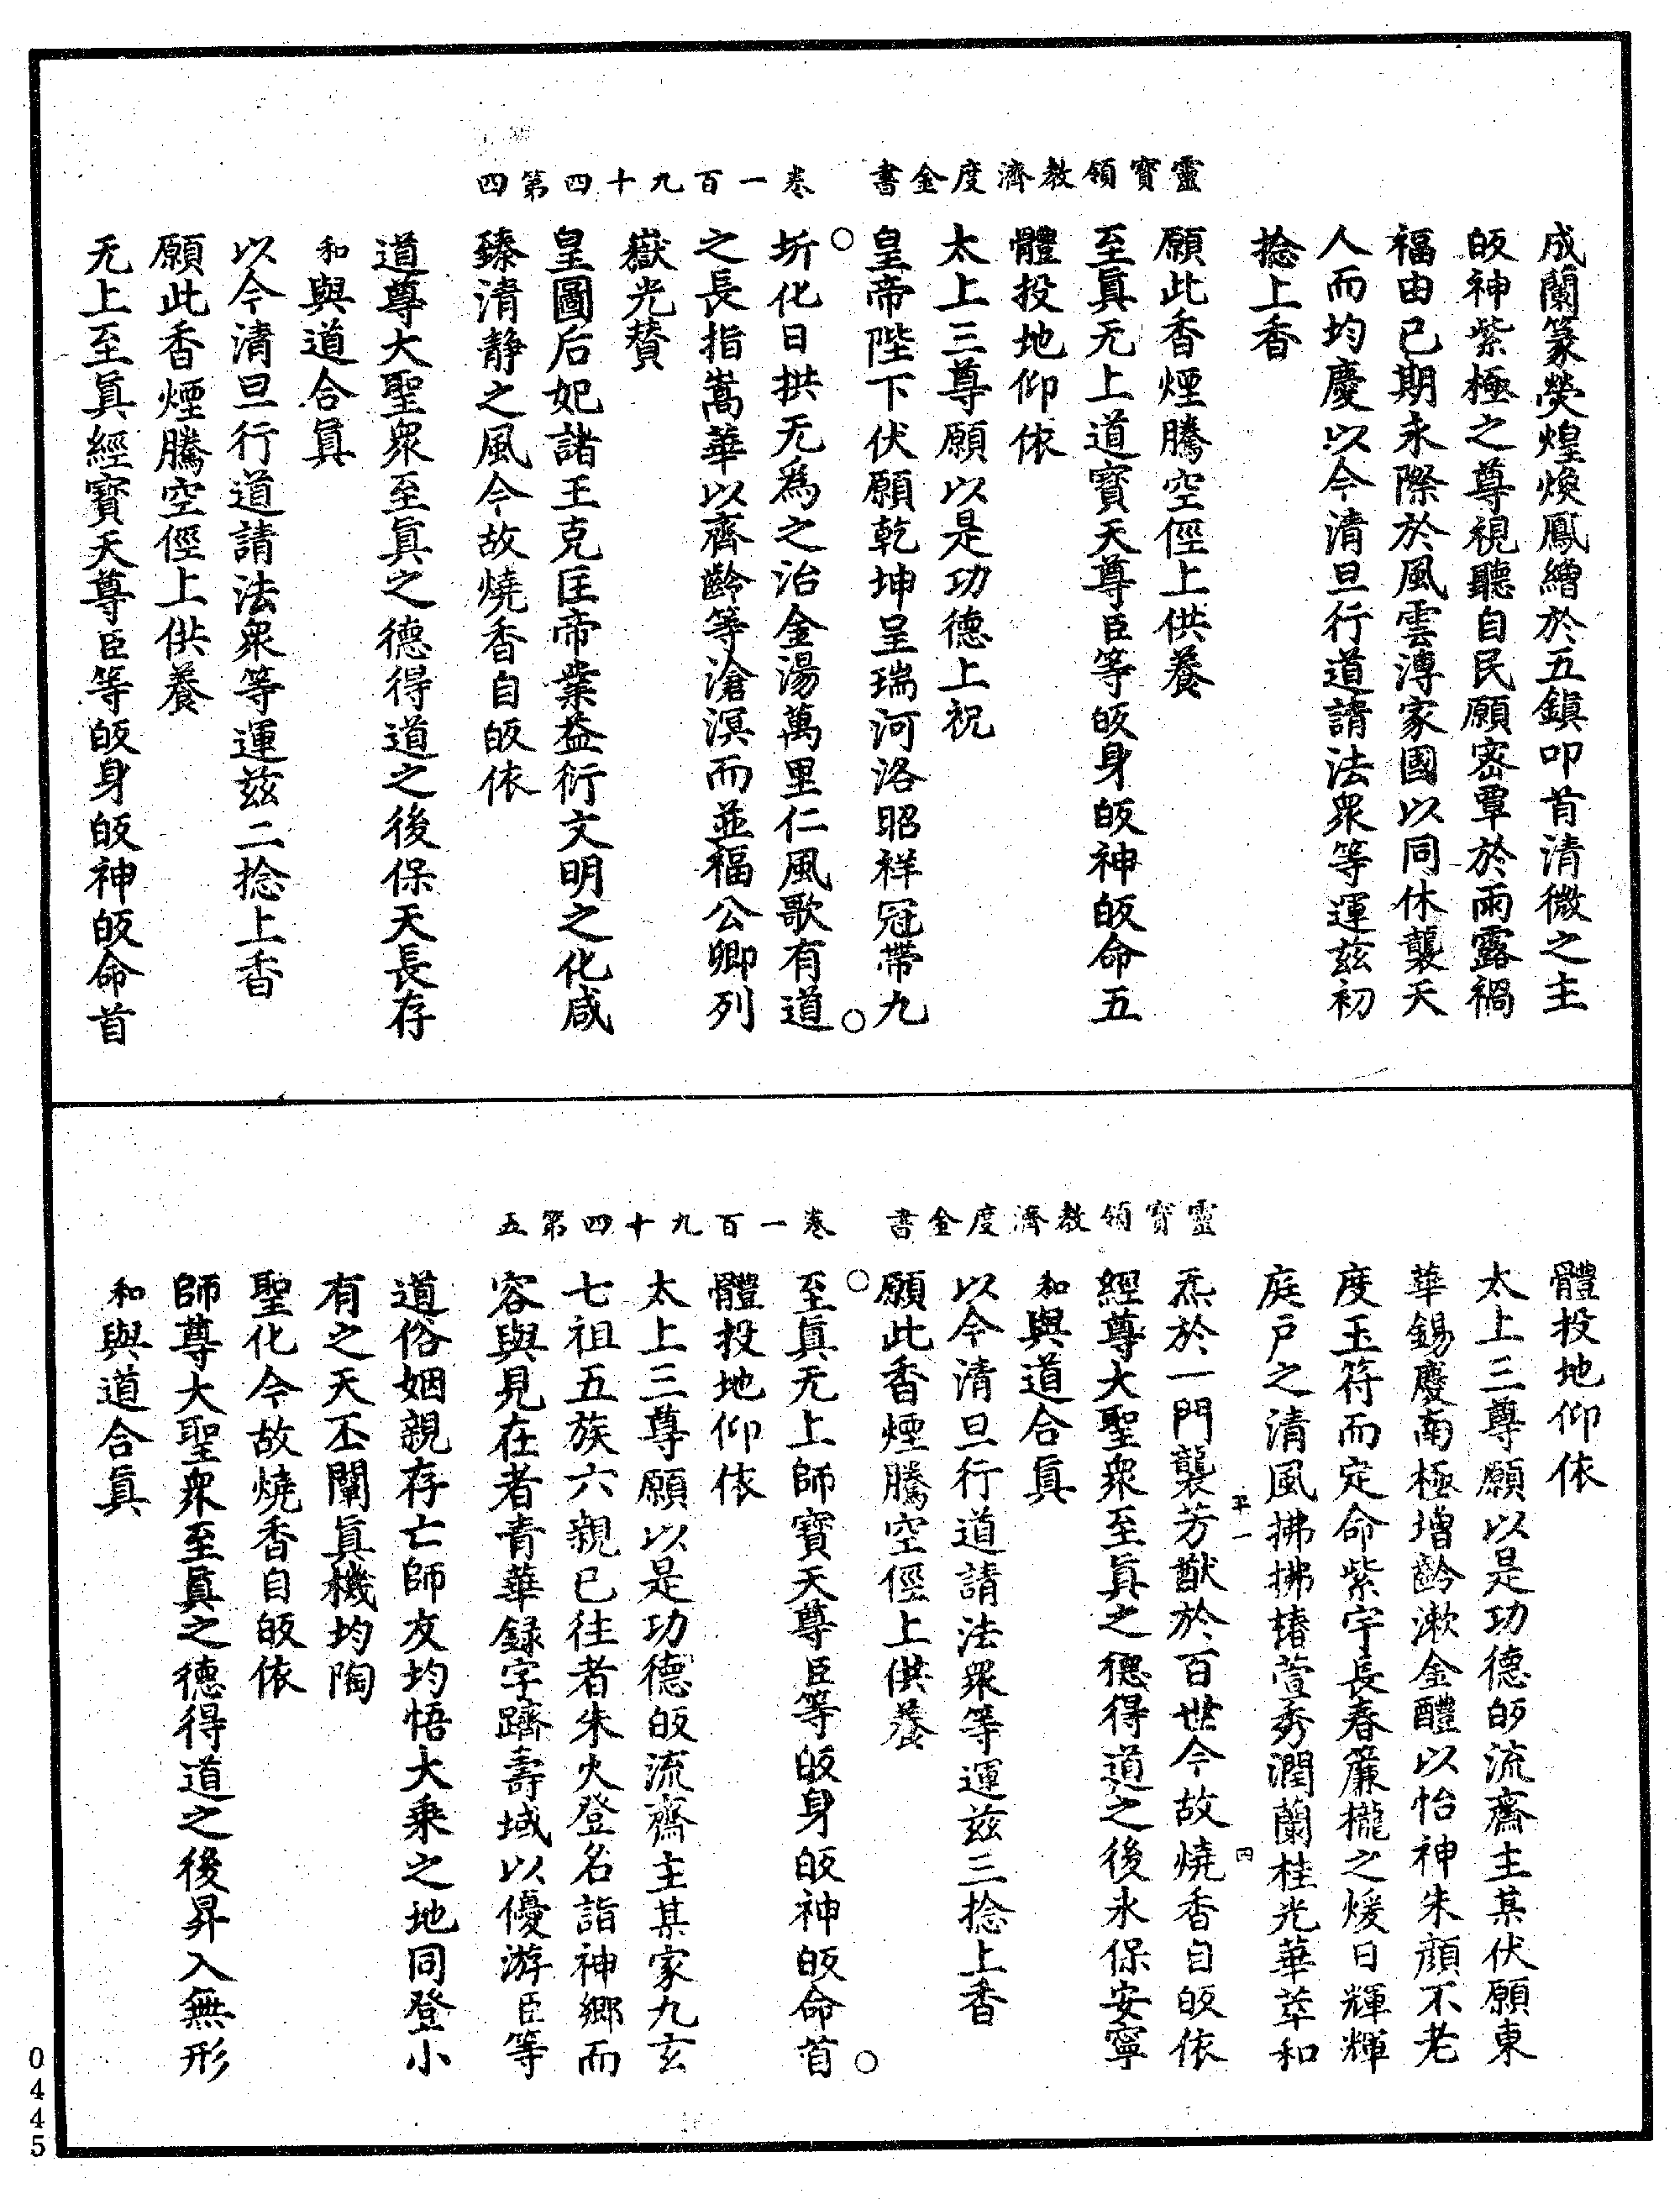 靈寶領教濟度金書 卷一百九十四第四
成蘭篆熒煌煥鳳繒於五鎮叩首清微之主
皈神紫極之尊視聽自民願密覃於雨露禍
福由已期永際於風雲溥家國以同休襲天
人而均慶以今清旦行道請法衆等運茲初
捻上香
願此香煙騰空徑上供養
至眞无上道寶天尊臣等皈身皈神皈命五
體投地仰依
太上三尊願以是功德上祝
皇帝陛下伏願乾坤呈瑞河洛昭祥冠帶九
圻化日拱无爲之治金湯萬里仁風歌有道
之長指嵩華以齊齡等滄溟而並福公卿列
嶽光賛
皇圖后妃諸王克匡帝業益衍文明之化咸
臻清静之風今故燒香自皈依
道尊大聖衆至眞之德得道之後保天長存
和與道合眞
以今清旦行道請法衆等運茲二捻上香
願此香煙騰空徑上供養
无上至眞經寶天尊臣等皈身皈神皈命首
靈寶領教濟度金書 卷一百九十四第五
體投地仰依
太上三尊願以是功德皈流齋主某伏願東
華錫慶南極増齡漱金醴以怡神朱顔不老
度玉符而定命紫宇長春簾櫳之煖日輝輝
庭戸之清風拂拂椿萱秀潤蘭桂光華萃和
炁於一門襲芳猷於百世今故燒香自皈依
平一 四
經尊大聖衆至眞之德得道之後永保安寧
和與道合眞
以今清旦行道請法衆等運茲三捻上香
願此香煙騰空徑上供養
至眞无上師寶天尊臣等皈身皈神皈命首
體投地仰依
太上三尊願以是功德皈流齋主某家九玄
七祖五族六親已往者朱火登名詣神鄉而
容與見在者青華録字躋壽域以優游臣等
道俗姻親存亡師友均悟大乘之地同登小
有之天丕闡眞機均陶
聖化今故燒香自皈依
師尊大聖衆至眞之德得道之後昇入無形
和與道合眞
0445